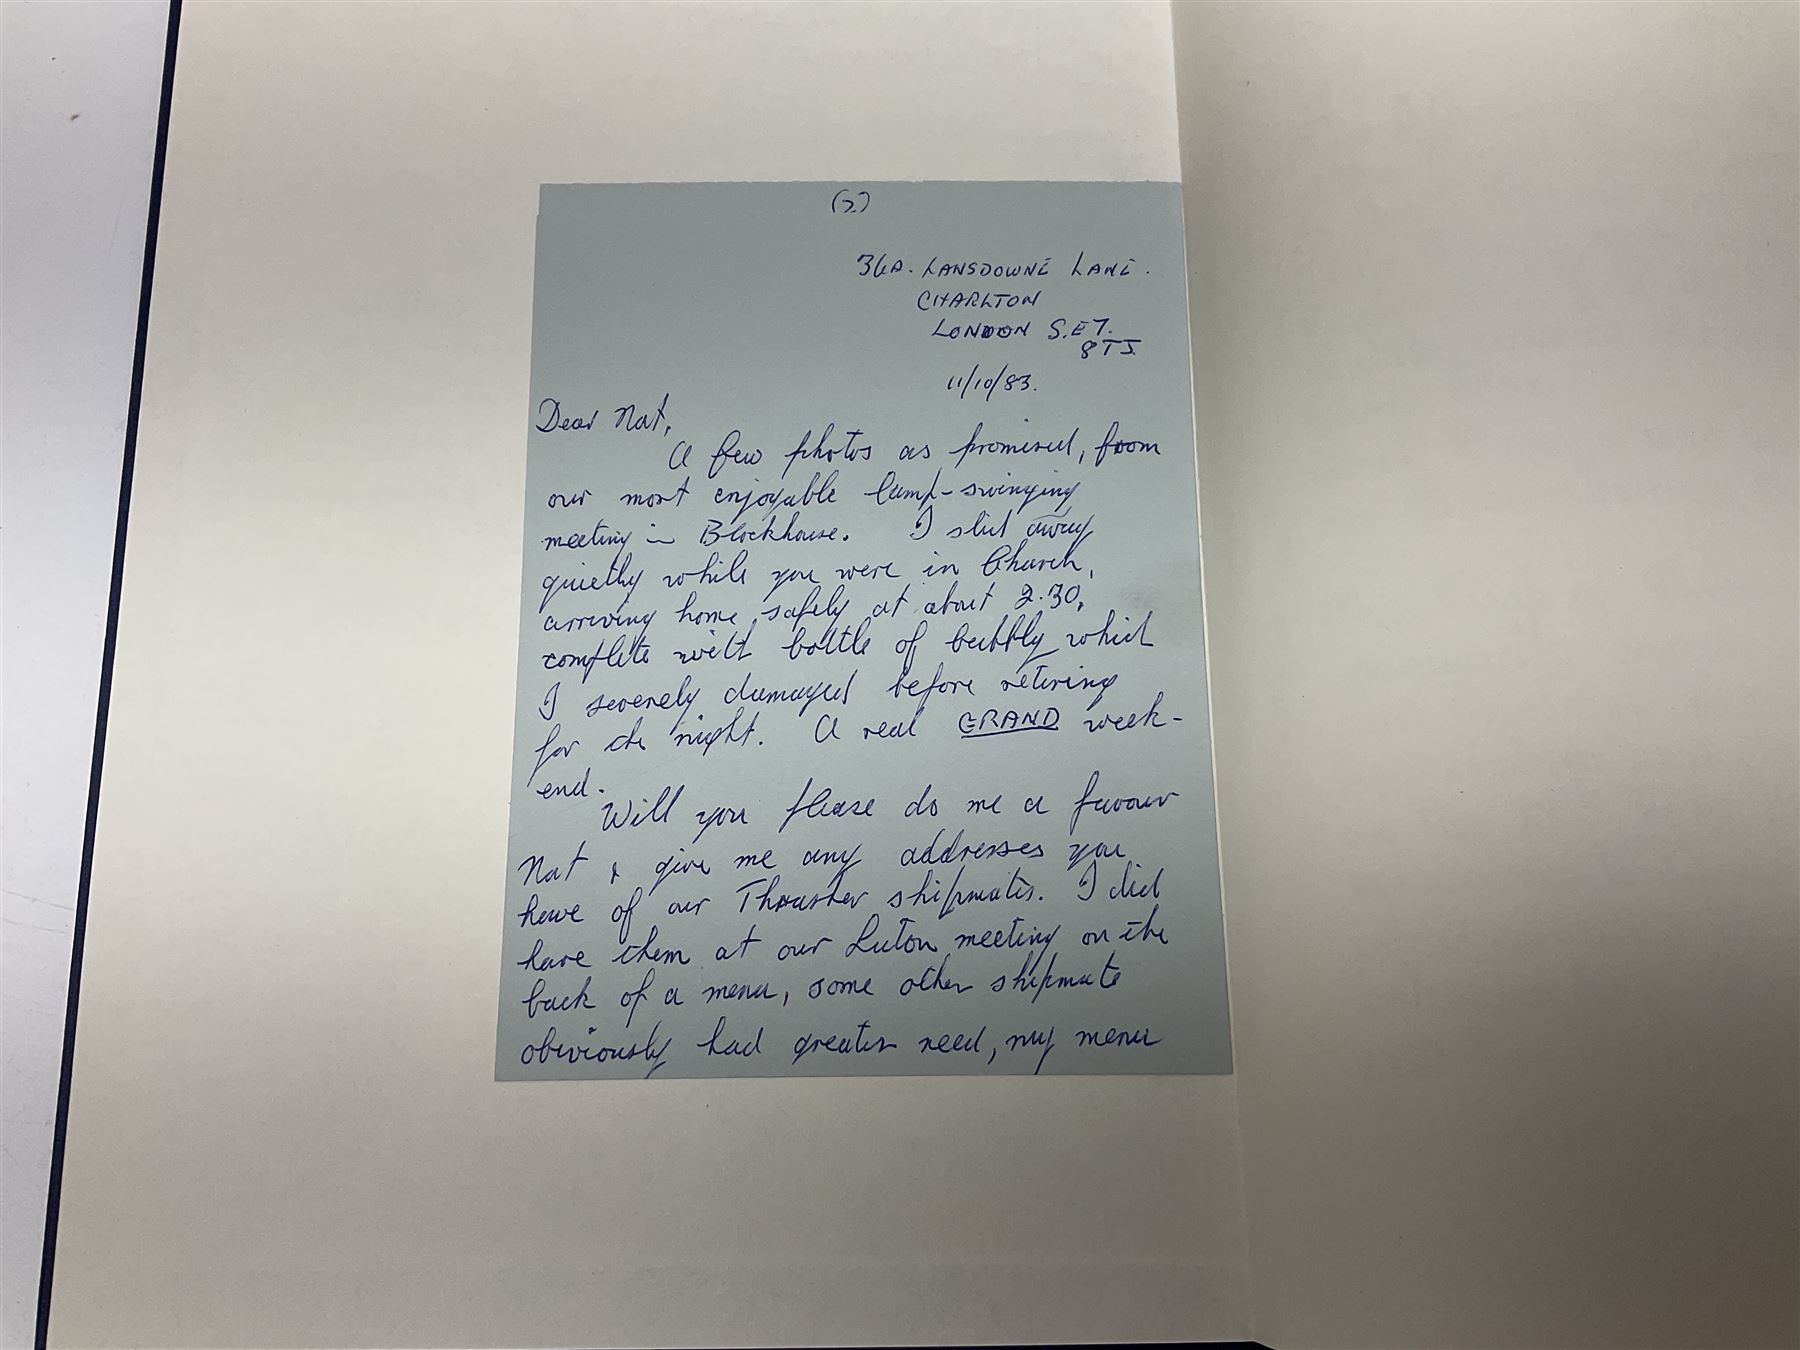 (2)
36A. LANSDOWNE LANE.
CHARLTON
LONDON S.E7.
8TJ.
11/10/83.
Dear Nat,
A few photos as promised, from
our most enjoyable lamp-swinging
meeting in Blockhouse. I slid away
quietly while you were in Church,
arriving home safely at about 2.30,
complete with bottle of bubbly which
I severely damaged before retiring
for the night. A real GRAND week-
end.
Will you please do me a favour
Nat & give me any addresses you
have of our Thruster shipmates. I did
have them at our Luton meeting on the
back of a menu, some other shipmate
obviously had greater need, my menu